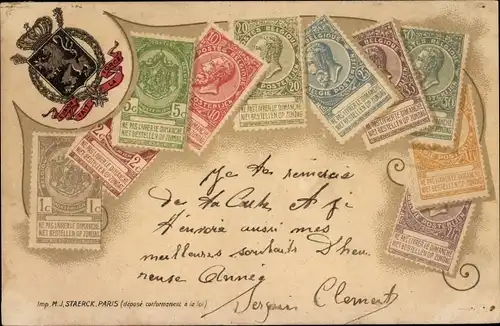 20 20
POSTES BELGIQUE
10 10
5c 5c
NE PAS LIVRER LE DIMANCHE
NIET BESTELLEN OP ZONDAG
2c 2c
NE PAS LIVRER LE DIMANCHE
NIET BESTELLEN OP ZONDAG
10 10
NE PAS LIVRER LE DIMANCHE
NIET BESTELLEN OP ZONDAG
NE PAS LIVRER LE DIMANCHE
NIET BESTELLEN OP ZONDAG
25
NE PAS LIVRER LE DIMANCHE
NIET BESTELLEN OP ZONDAG
35
NE PAS LIVRER LE DIMANCHE
NIET BESTELLEN OP ZONDAG
50
NE PAS LIVRER LE DIMANCHE
NIET BESTELLEN OP ZONDAG
1c 1c
NE PAS LIVRER LE DIMANCHE
NIET BESTELLEN OP ZONDAG
NE PAS LIVRER LE DIMANCHE
NIET BESTELLEN OP ZONDAG
NE PAS LIVRER LE DIMANCHE
NIET BESTELLEN OP ZONDAG
Je te remercie
de ta Carte
t'envoie aussi mes
meilleurs souhaits D'heu
reuse Année
Clement
Imp. M.J. STAERCK, PARIS (déposé conformément à la loi)